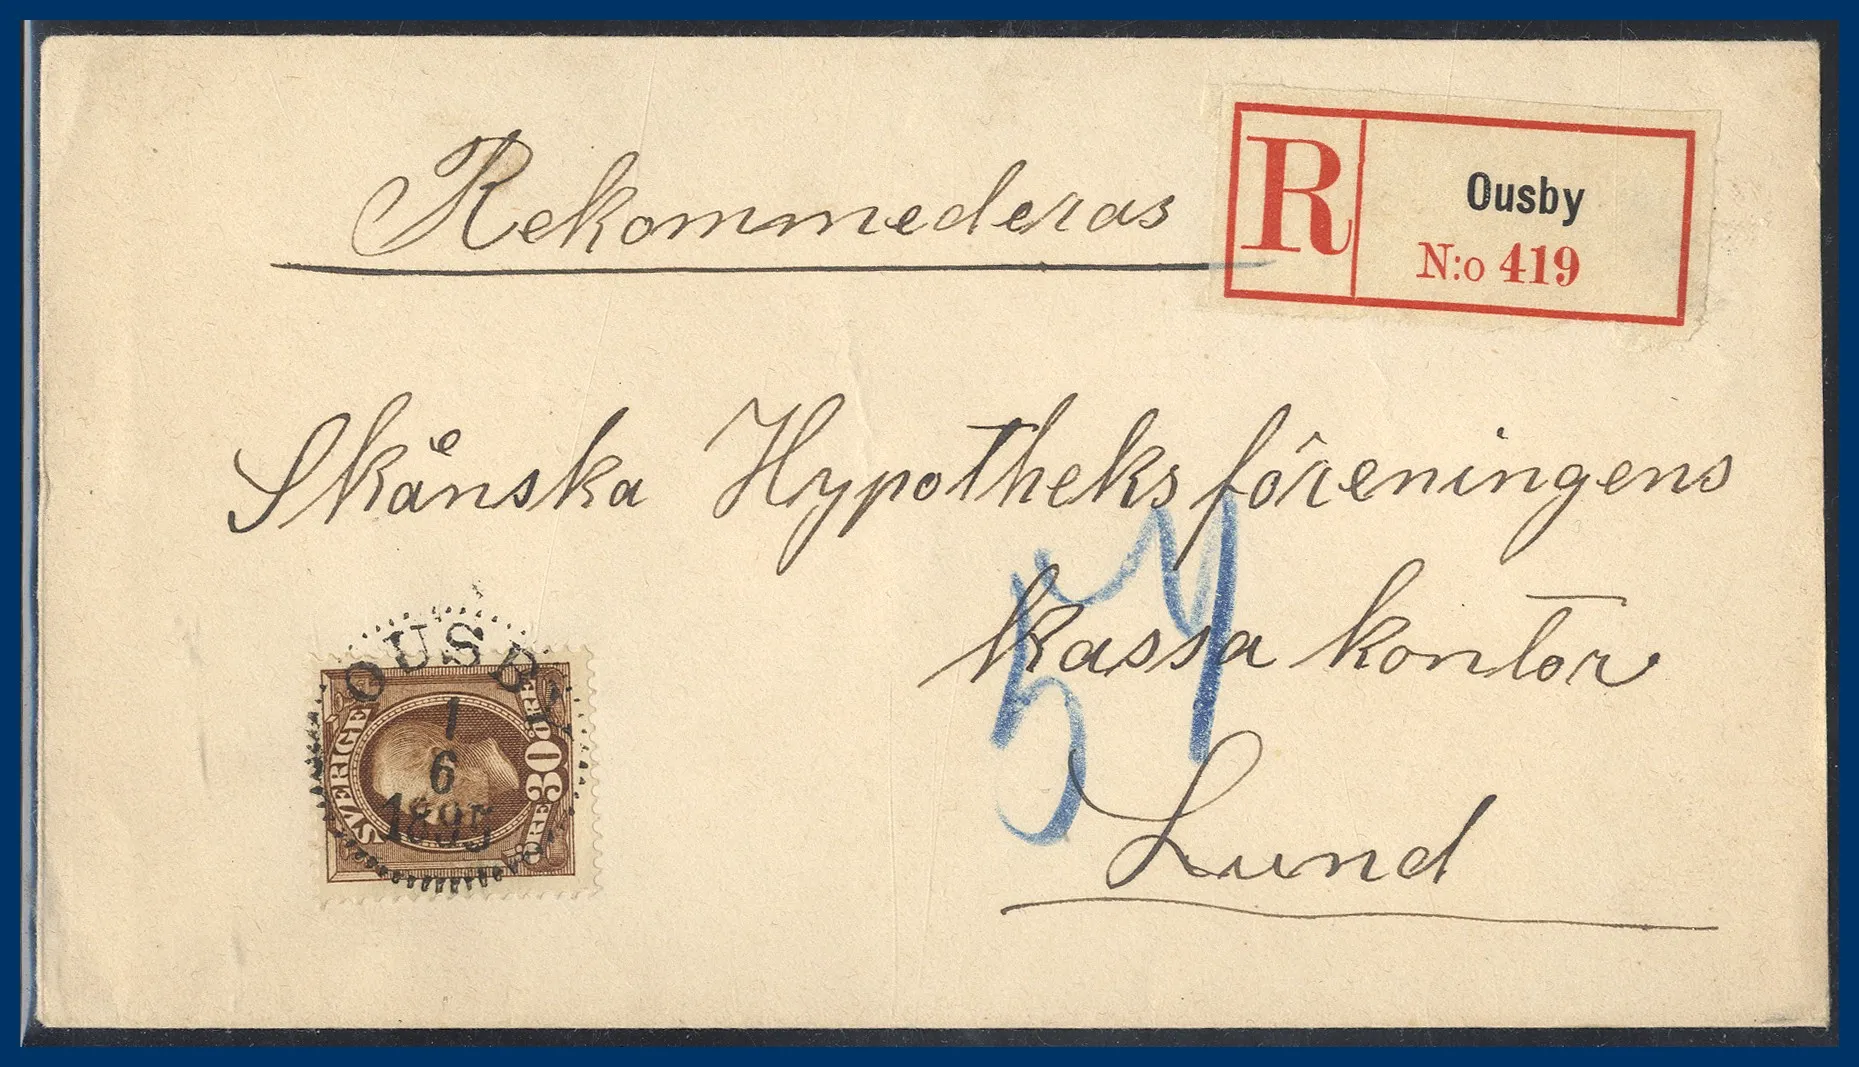 Rekommederas
R
Ousby
N:o 419
Skånska Hypotheksföreningens
kassa kontor
Lund
57
OUSBY
1
6
1895
SVERIGE
30
ÖRE
ÖRE